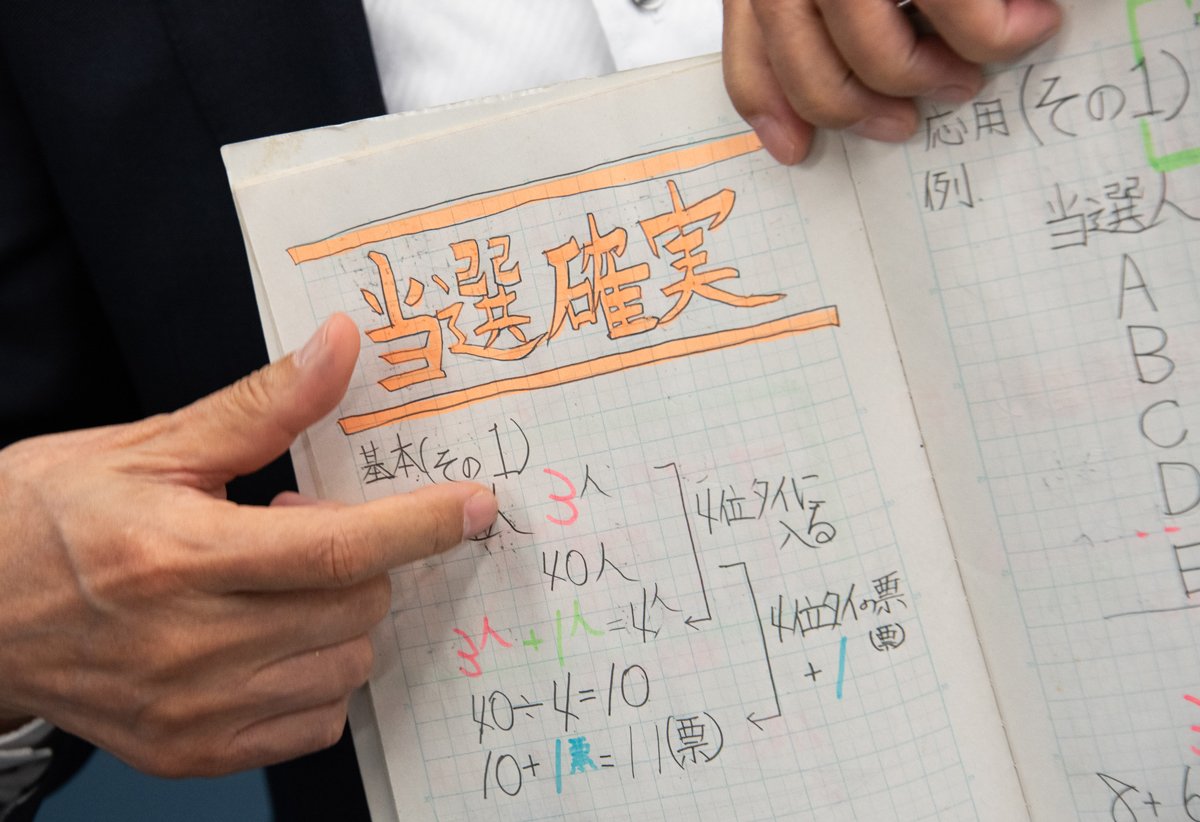 当選確実
基本(その1)
人 3人
40人
4位タイに
入る
3人+1人=4人
4位タイの票
(票)
+1
40÷4=10
10+1票=11(票)
応用(その1)
例.
当選人
A
B
C
D
E
8+6